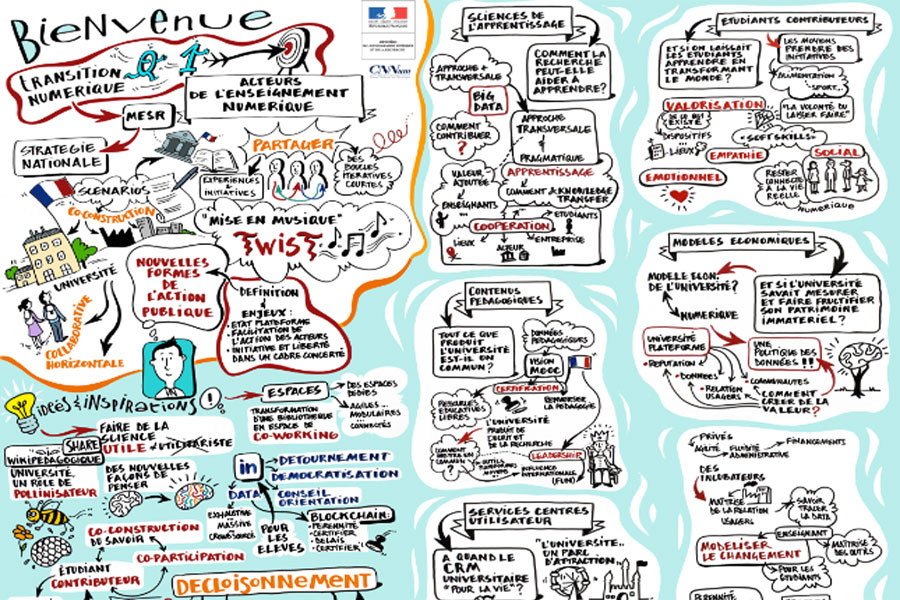 BIENVENUE
TRANSITION
NUMERIQUE
ACTEURS
DE L'ENSEIGNEMENT
NUMERIQUE
MESR
STRATEGIE
NATIONALE
SCENARIOS
CO-CONSTRUCTION
UNIVERSITÉ
COLLABORATIVE
HORIZONTALE
EXPERIENCES
+
INITIATIVES
PARTAGER
DES
BOUCLES
ITERATIVES
COURTES
"MISE EN MUSIQUE"
TWIST
NOUVELLES
FORMES
DE
L'ACTION
PUBLIQUE
DEFINITION
ENJEUX:
• ETAT PLATEFORME
• FACILITATION
DE L'ACTION DES ACTEURS
• INITIATIVE ET LIBERTÉ
DANS UN CADRE CONCERTÉ
IDÉES & INSPIRATIONS
FAIRE DE LA
SCIENCE
UTILE ≠ UTILITARISTE
SHARE
WIKIPEDAGOGIQUE
UNIVERSITÉ
UN RÔLE DE
POLLINISATEUR
DES NOUVELLES
FAÇONS DE
PENSER
CO-CONSTRUCTION
DU SAVOIR
CO-PARTICIPATION
ÉTUDIANT
CONTRIBUTEUR
DECLOISONNEMENT
ESPACES
DES ESPACES
DÉDIÉS
AGILES...
MODULAIRES
CONNECTÉS
TRANSFORMATION
D'UNE BIBLIOTHEQUE
EN ESPACE DE
CO-WORKING
in
DETOURNEMENT
DEMOCRATISATION
DATA
CONSEIL
ORIENTATION
EXHAUSTIVE
MASSIVE
CROWDSOURCE
POUR
LES
ELEVES
BLOCKCHAIN:
• PERENNITÉ
• CERTIFIER
• DELAIS
• CERTIFIER
SCIENCES DE
L'APPRENTISSAGE
APPROCHE +
TRANSVERSALE
COMMENT LA
RECHERCHE
PEUT-ELLE
AIDER À
APPRENDRE?
BIG
DATA
COMMENT
CONTRIBUER
?
APPROCHE
TRANSVERSALE
+
PRAGMATIQUE
APPRENTISSAGE
VALEUR
AJOUTÉE
ENSEIGNANTS
COMMENT
KNOWLEDGE
TRANSFER
COOPERATION
ETUDIANTS
LIEUX
ACTEUR
ENTREPRISE
CONTENUS
PEDAGOGIQUES
TOUT CE QUE
PRODUIT
L'UNIVERSITÉ
EST-IL EN
COMMUN?
DONNÉES
PEDAGOGIQUES
VISION
MOOC
CERTIFICATION
RESSOURCES
EDUCATIVES
LIBRES
REMAGISER LA PEDAGOGIE
L'UNIVERSITÉ
PRODUIT DE
L'ECRIT ET
DE LA RECHERCHE
COMMENT
METTRE EN
COMMUN
?
LEADERSHIP
OUTILS
PLATEFORMES
MOYENS
INFLUENCE
INTERNATIONALE
(FUN)
SERVICES CENTRES
UTILISATEUR
A QUAND LE
CRM
UNIVERSITAIRE
"POUR LA VIE"?
"L'UNIVERSITÉ..
UN PARC
D'ATTRACTION..
ETUDIANTS CONTRIBUTEURS
ET SI ON LAISSAIT
LES ETUDIANTS
APPRENDRE EN
TRANSFORMANT
LE MONDE?
LES MOYENS
PRENDRE DES
INITIATIVES
ALIMENTATION
SPORT...
VALORISATION
DE CE QUI
EXISTE
DISPOSITIFS
LIEUX
"LA VOLONTÉ DU
LAISSER FAIRE"
"SOFTSKILLS"
EMPATHIE
SOCIAL
EMOTIONNEL
RESTER
CONNECTÉ
À LA VIE
REELLE
NUMERIQUE
MODELES ECONOMIQUES
MODELE ECON.
DE L'UNIVERSITÉ?
NUMERIQUE
ET SI L'UNIVERSITÉ
SAVAIT MESURER
ET FAIRE FRUCTIFIER
SON PATRIMOINE
IMMATERIEL?
UNIVERSITÉ
PLATEFORME
• REPUTATION
• DONNÉES
• RELATION
USAGERS
UNE
POLITIQUE DES
DONNÉES !!!
COMMUNAUTÉS
COMMENT
CRÉER DE LA
VALEUR?
PRIVÉS
AGILITÉ
FLUIDITÉ
ADMINISTRATIVE
FINANCEMENTS
DES
INCUBATEURS
MAÎTRISE
DE LA RELATION
USAGERS
SAVOIR
TRACER
LA DATA
MODELISER
LE CHANGEMENT
ENSEIGNANT
MAÎTRISE
DES OUTILS
POUR LES
ÉTUDIANTS
PERENNITÉ